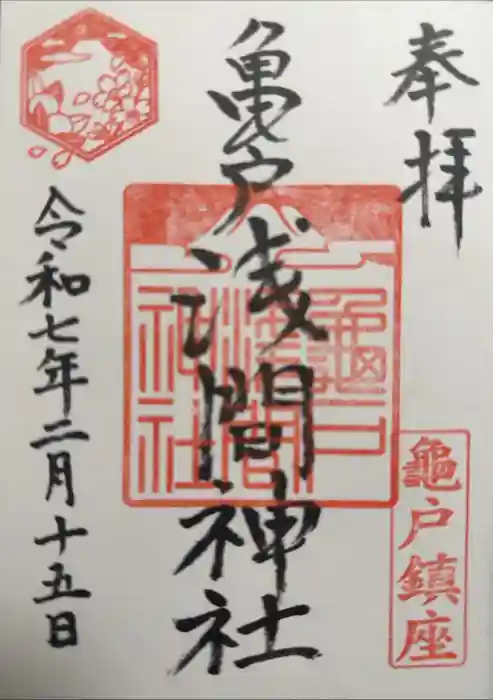 奉拝
龜戸鎮座
亀戸浅間神社
龜戸
浅間
神社
令和七年二月十五日